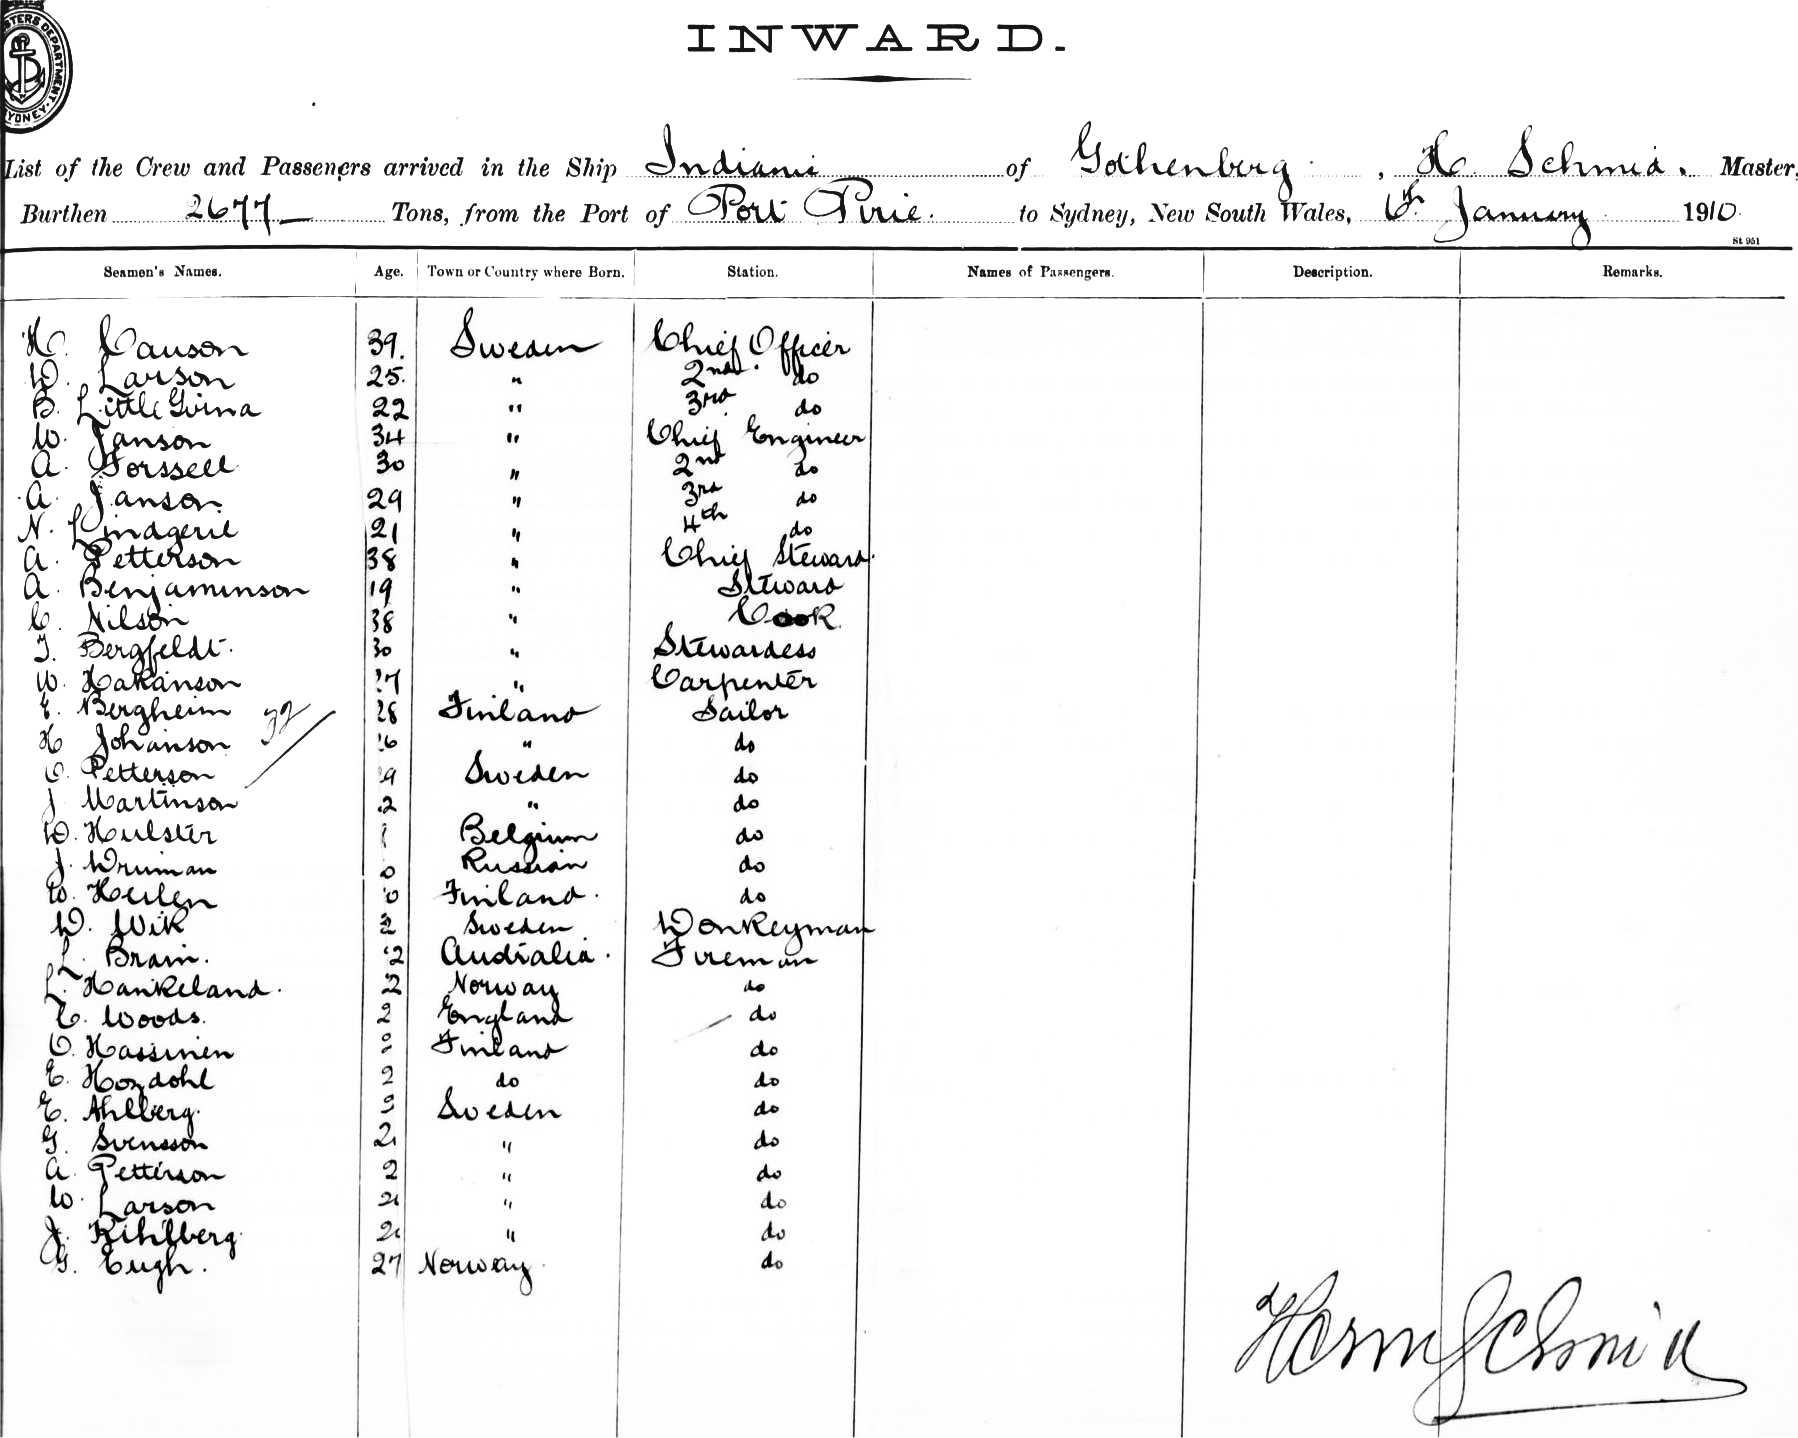 INWARD.
MASTERS DEPARTMENT SYDNEY
List of the Crew and Passeners arrived in the Ship Indianic of Gothenberg, H. Schmid. Master,
Burthen 2677 Tons, from the Port of Port Pirie. to Sydney, New South Wales, 6th January 1910
St 951
Seamen's Names. Age. Town or Country where Born. Station. Names of Passengers. Description. Remarks.
H. 39. Sweden Chief Officer
W. Larson 25. " 2nd do
B. 22 " 3rd do
W. Janson 34 " Chief Engineer
A. Forssell 30 " 2nd do
A. Janson 29 " 3rd do
N. 21 " 4th do
A. Petterson 38 " Chief Steward
A. Benjaminson 19 " Steward
C. Nilson 38 " Cook
T. Bergfeldt. 30 " Stewardess
W. Hakanson 27 " Carpenter
E. Bergheim 28 Finland Sailor
32
H Johanson " do
O. Petterson 9 Sweden do
J Martinson 2 " do
D. Hulster Belgium do
J. 0 Russian do
W. Heilen 0 Finland. do
D. Wik 2 Sweden Donkeyman
L. Brain. 2 Australia. Fireman
L. Hankeland. 2 Norway do
C. Woods. 2 England do
O. Hassinen 2 Finland do
E. 2 do do
E. Ahlberg. Sweden do
G. Svensson 2 " do
A. Petterson 2 " do
W. Larson 2 " do
J. Kihlberg. 2 " do
G. Eugh. 27 Norway do
Herm Schmid